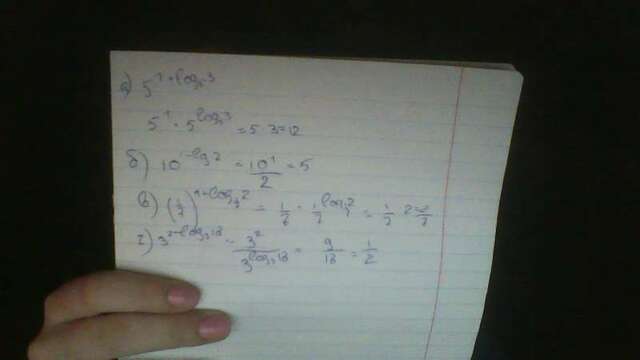 а) 5^(1+log₅3)
5¹ · 5^(log₅3) = 5·3=12
б) 10^(1-lg2) = 10¹/2 = 5
в) (1/7)^(1+log_(1/7)2) = 1/7 · 1/7^(log_(1/7)2) = 1/7 · 2=2/7
г) 3^(2-log₃18) = 3²/3^(log₃18) = 9/18 = 1/2